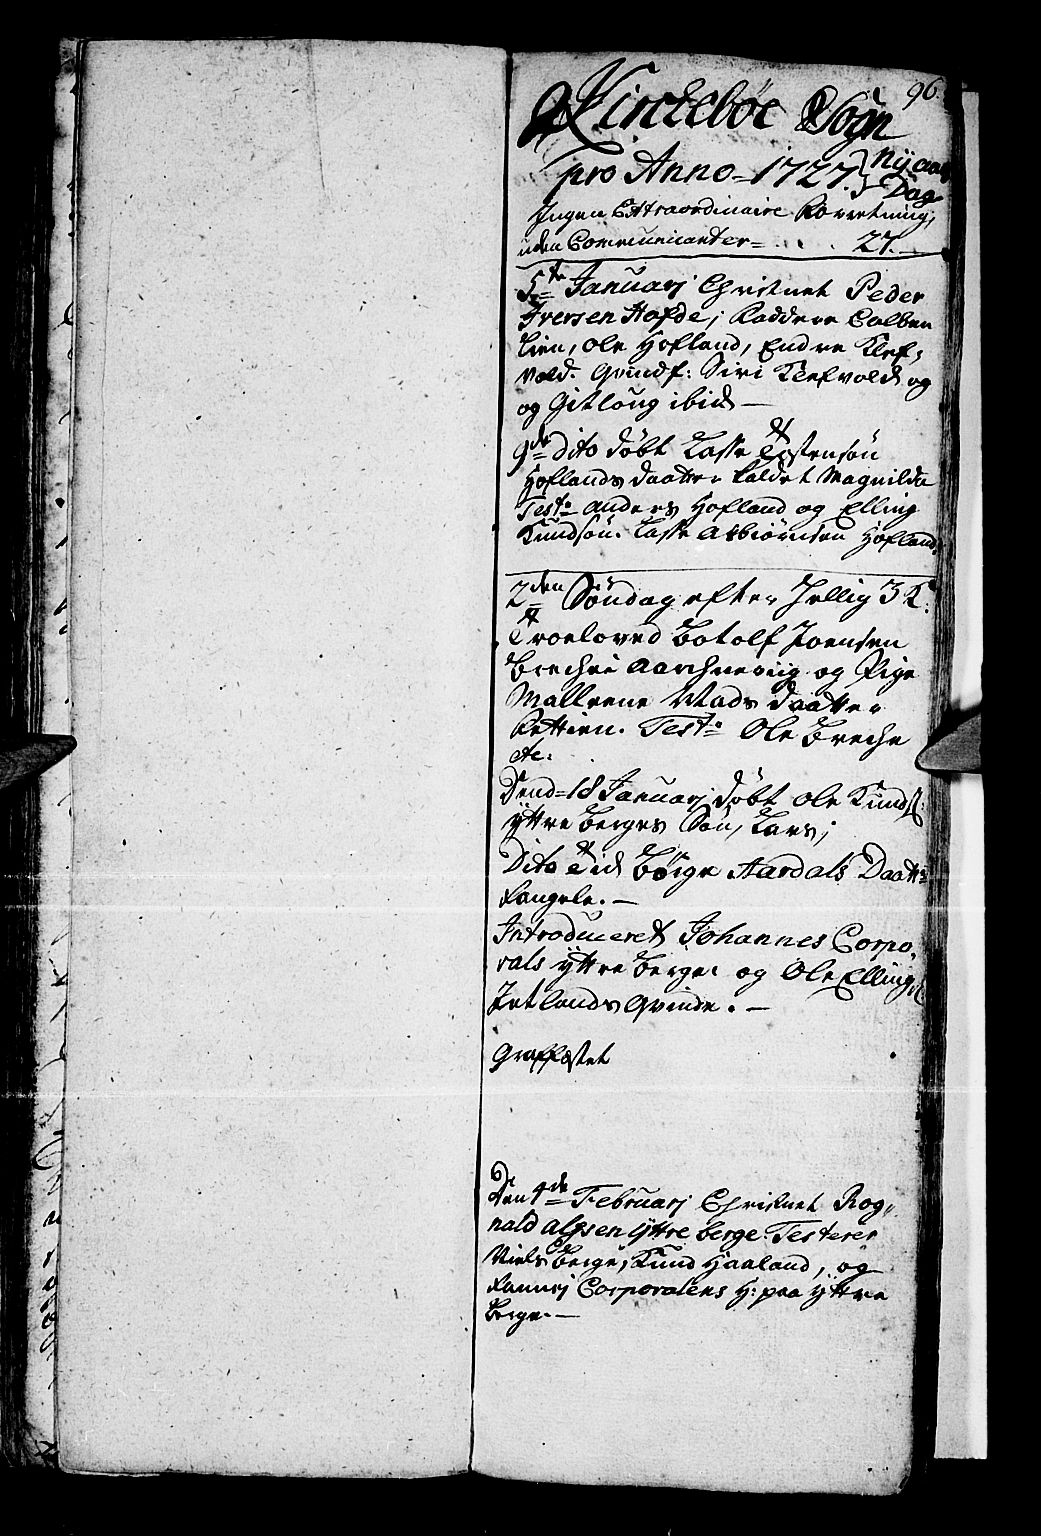 96
Kirchebøe Sogn
pro Anno = 1727. Nÿ aars
Dag
Ingen Extraordinaire Forretning,
uden Communicanter = . . . 27. —
5te Januarj Christnet Peder
Iversen Hafde; Faddere Colben
Lien, Ole Hofland, Endre Klef-
vold. Qvindf: Siri Klefvold og
og Gitloug ibid —
9de dito døbt Lasse Tostensøn
Hoflands daatter kaldet Magnilda
Test: Anders Hofland og Elling
Knudsøn. Lasse Asbiørnsen Hofland.
2den Søndag efter Hellig 3 K:
Troeloved Botolf Joensen
Breche og Pige
Mallene Mads daatter
Test: Ole Breche
etc:
Dend = 18 Januarj døbt Ole Knuds:
ÿttre Berges Søn, Lars;
Dito Tid Børge Aardals Daatt:
Introduceret Johannes Corpo-
rals ÿttre Berge: og Ole Elling
Qvinde. —
Graffæstet
Den 4de Februarj Christnet Rog-
nald Olsen ÿttre berge Testerer
Niels Berge, Knud Haaland, og
Corporalens H: paa ÿttre
Berge. —